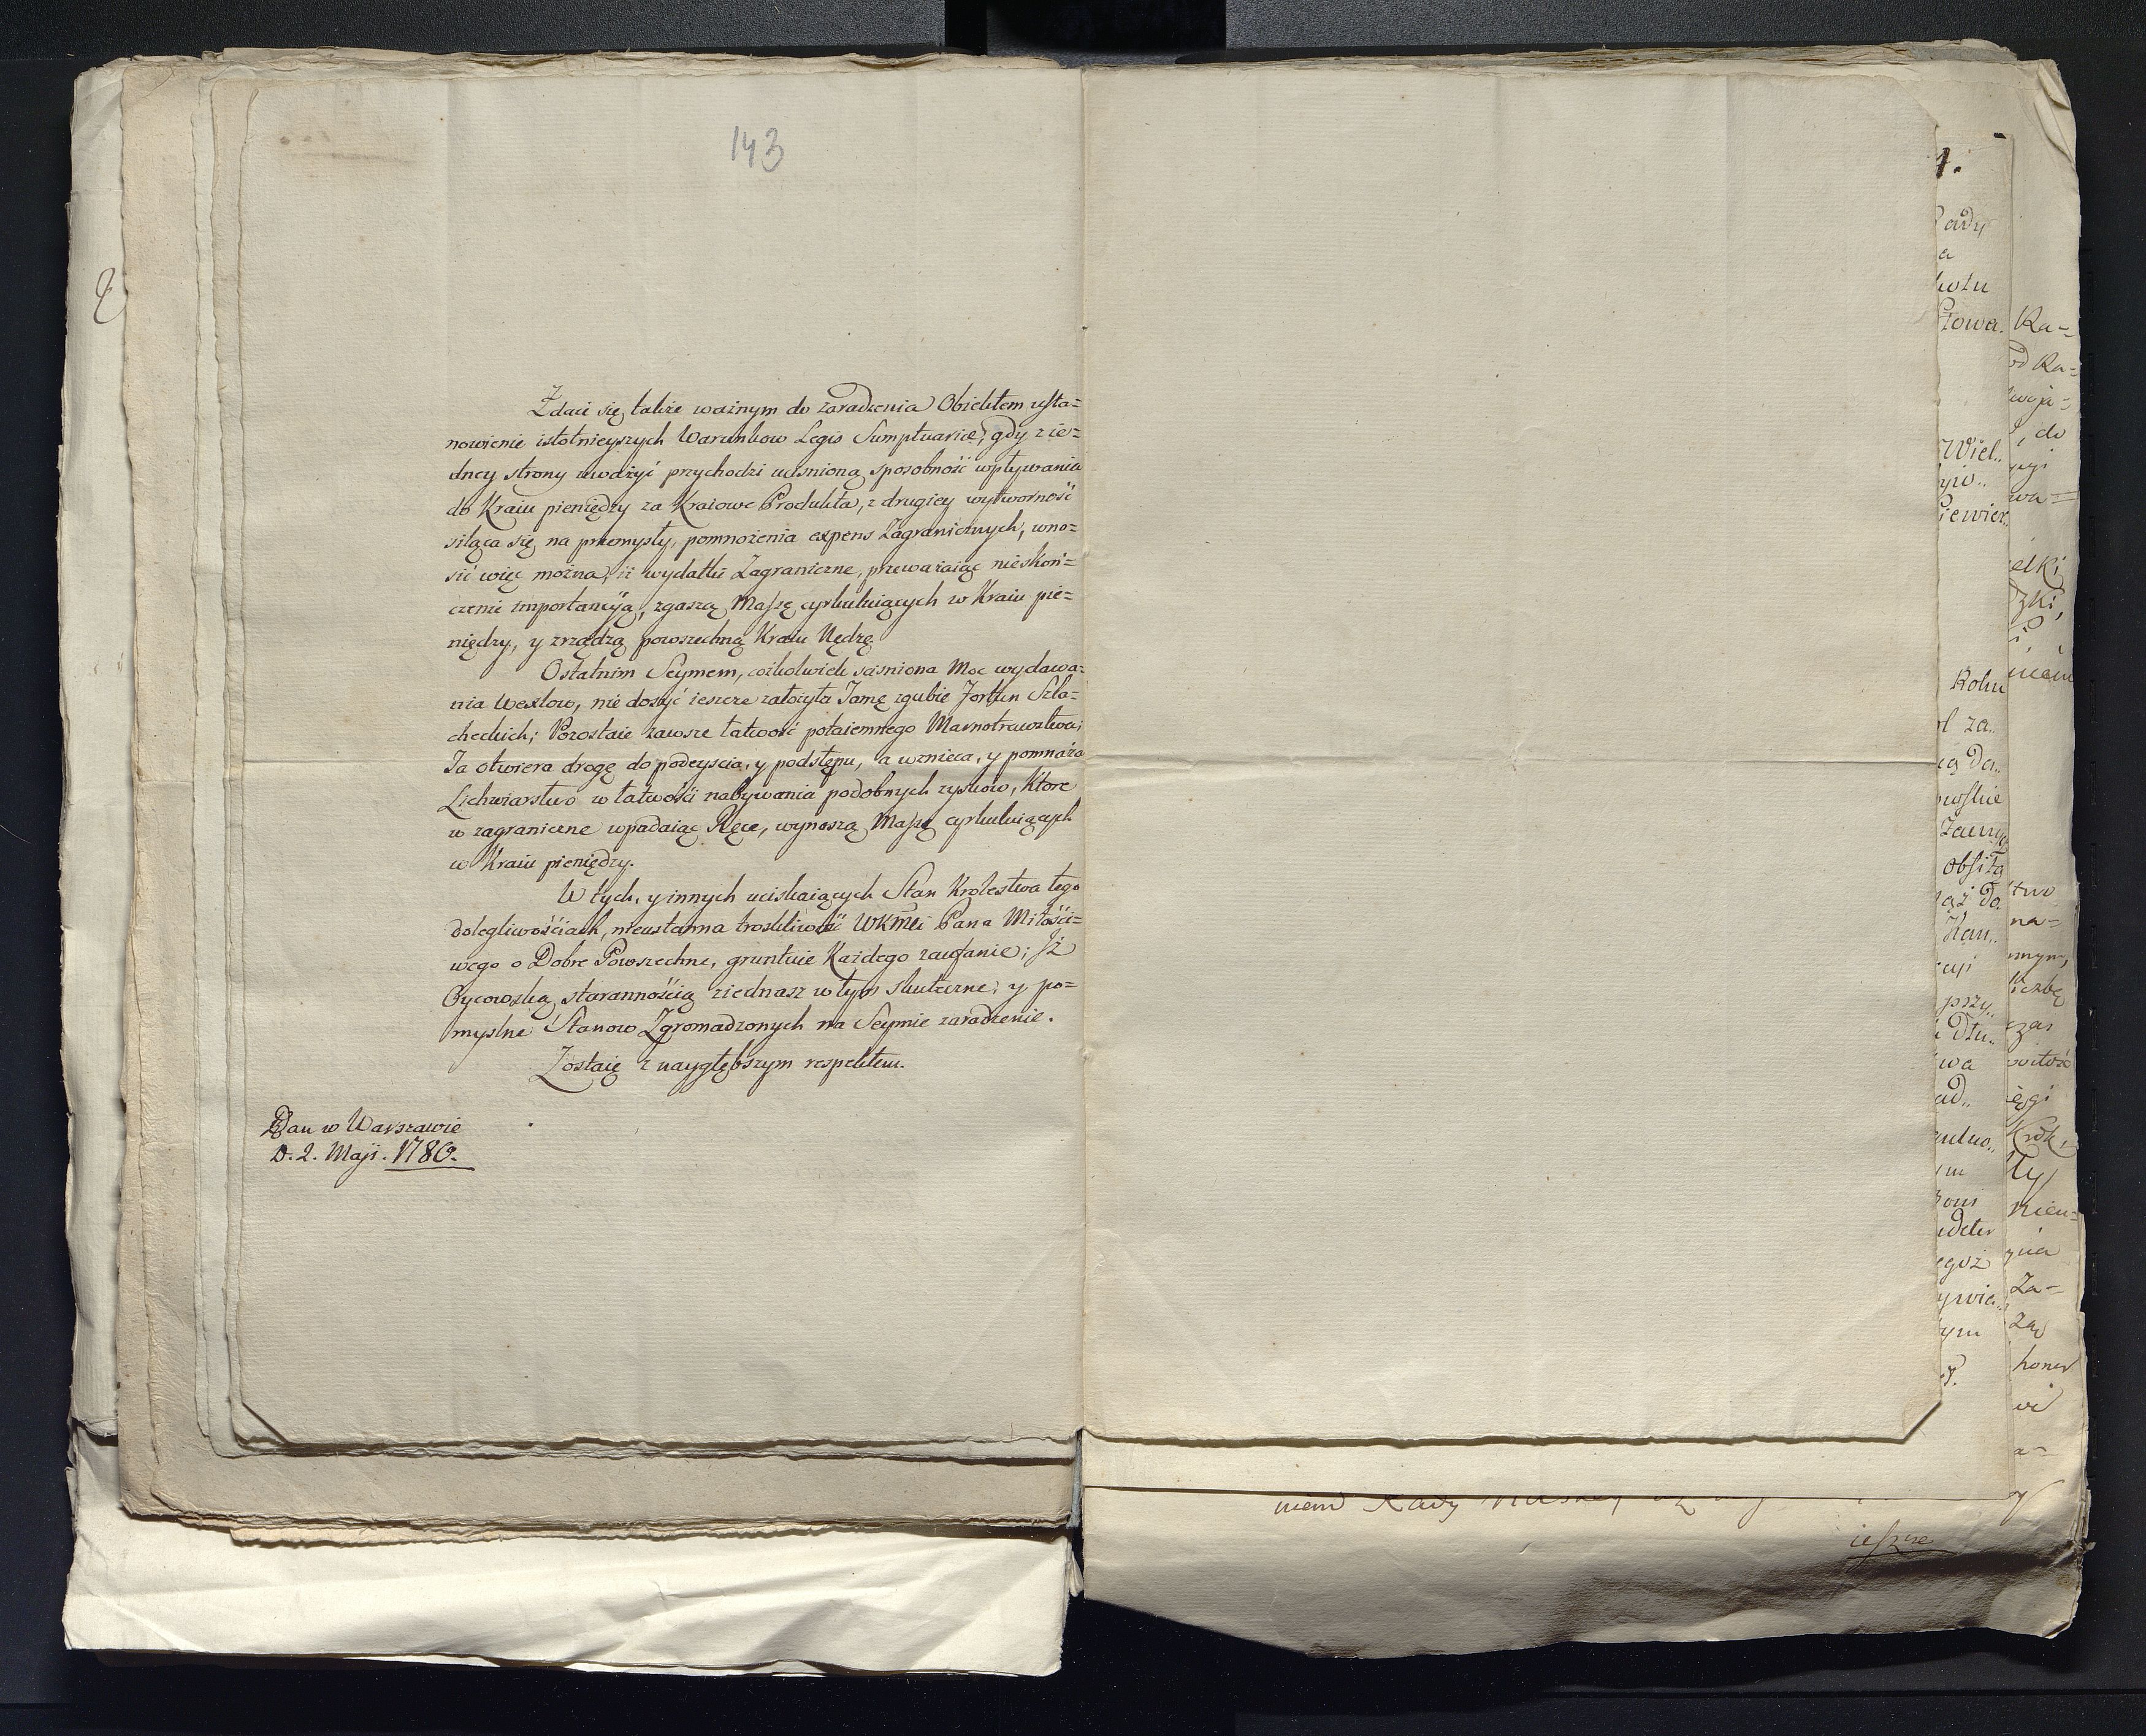 143
Zdaie się także ważnym do zaradzenia Obiektem usta=
nowienie istotnieyszych Warunkow Legis Sumptuariæ, gdy z ie=
dney strony uważyć przychodzi uciśnioną sposobność wpływania
do Kraiu pieniędzy za Kraiowe Produkta, z drugiey wytworność
siląca się na przemysły, pomnożenia expens Zagranicznych, wno=
sić więc można, iż wydatki Zagraniczne, przeważaiąc nieskoń=
czenie importancyą, zgaszą Massę cyrkuluiących w Kraiu pie=
niędzy, y zrządzą powszechną Kraiu Nędzę.
Ostatnim Seymem, cożkolwiek sciśniona Moc wydawa=
nia Wexlow, nie dosyć ieszcze założyła Tamę zgubie Fortun Szla=
checkich; Pozostaie zawsze łatwość potaiemnego Marnotrawstwa;
Ta otwiera drogę do podeyscia, y podstępu, a wznieca, y pomnaża
Lichwiarstwo w łatwości nabywania podobnych zyskow, Ktore
w zagraniczne wpadaiąc Ręce, wynoszą Massę cyrkuluiących
w Kraiu pieniędzy.
W tych, y innych uciskaiących Stan Krolestwa tego
dolegliwościach, nieustanna troskliwość WKMci Pana Miłości=
wego o Dobro Powszechne, gruntuie Każdego zaufanie; Iż
Oycowską starannością ziednasz w tym skuteczne, y po=
myslne Stanow Zgromadzonych na Seymie zaradzenie.
Zostaię z naygłębszym respektem.
Dan w Warszawie
D. 2. Maji. 1780.
Rady
Ka=
Wiel..
elki
Rohu
ol za..
Da..
obsiła
na=
czas
wa
Krok,
ty
nieu=
Za=
Zaś
honer
niem Rady
ieszcze